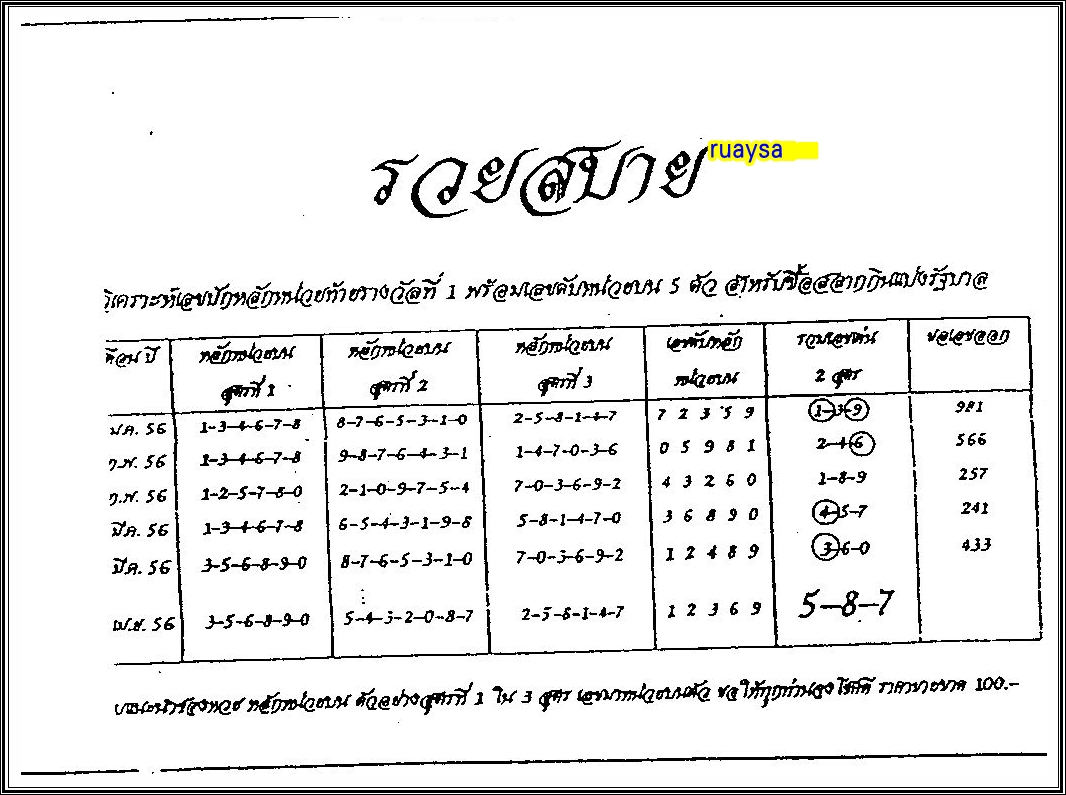 รวยสบาย ruaysa
วิเคราะห์เลขปักหลักหน่วยท้ายรางวัลที่ 1 พร้อมเลขดับหน่วยบน 5 ตัว สำหรับซื้อสลากกินแบ่งรัฐบาล
เดือน ปี หลักหน่วยบน หลักหน่วยบน หลักหน่วยบน เลขดับหลัก รวมเลขเด่น ผลเลขออก
สูตรที่ 1 สูตรที่ 2 สูตรที่ 3 หน่วยบน 2 สูตร
ม.ค. 56 1-3-4-6-7-8 8-7-6-5-3-1-0 2-5-8-1-4-7 7 2 3 5 9 1-3-9 981
ก.พ. 56 1-3-4-6-7-8 9-8-7-6-4-3-1 1-4-7-0-3-6 0 5 9 8 1 2-4-6 566
ก.พ. 56 1-2-5-7-8-0 2-1-0-9-7-5-4 7-0-3-6-9-2 4 3 2 6 0 1-8-9 257
มี.ค. 56 1-3-4-6-7-8 6-5-4-3-1-9-8 5-8-1-4-7-0 3 6 8 9 0 4-5-7 241
มี.ค. 56 3-5-6-8-9-0 8-7-6-5-3-1-0 7-0-3-6-9-2 1 2 4 8 9 3-6-0 433
เม.ย. 56 3-5-6-8-9-0 5-4-3-2-0-8-7 2-5-8-1-4-7 1 2 3 6 9 5-8-7
หลักหน่วยบน ตัวอย่างสูตรที่ 1 ใน 3 สูตร ขอให้ทุกท่านจงโชคดี ราคาขายขาด 100.-